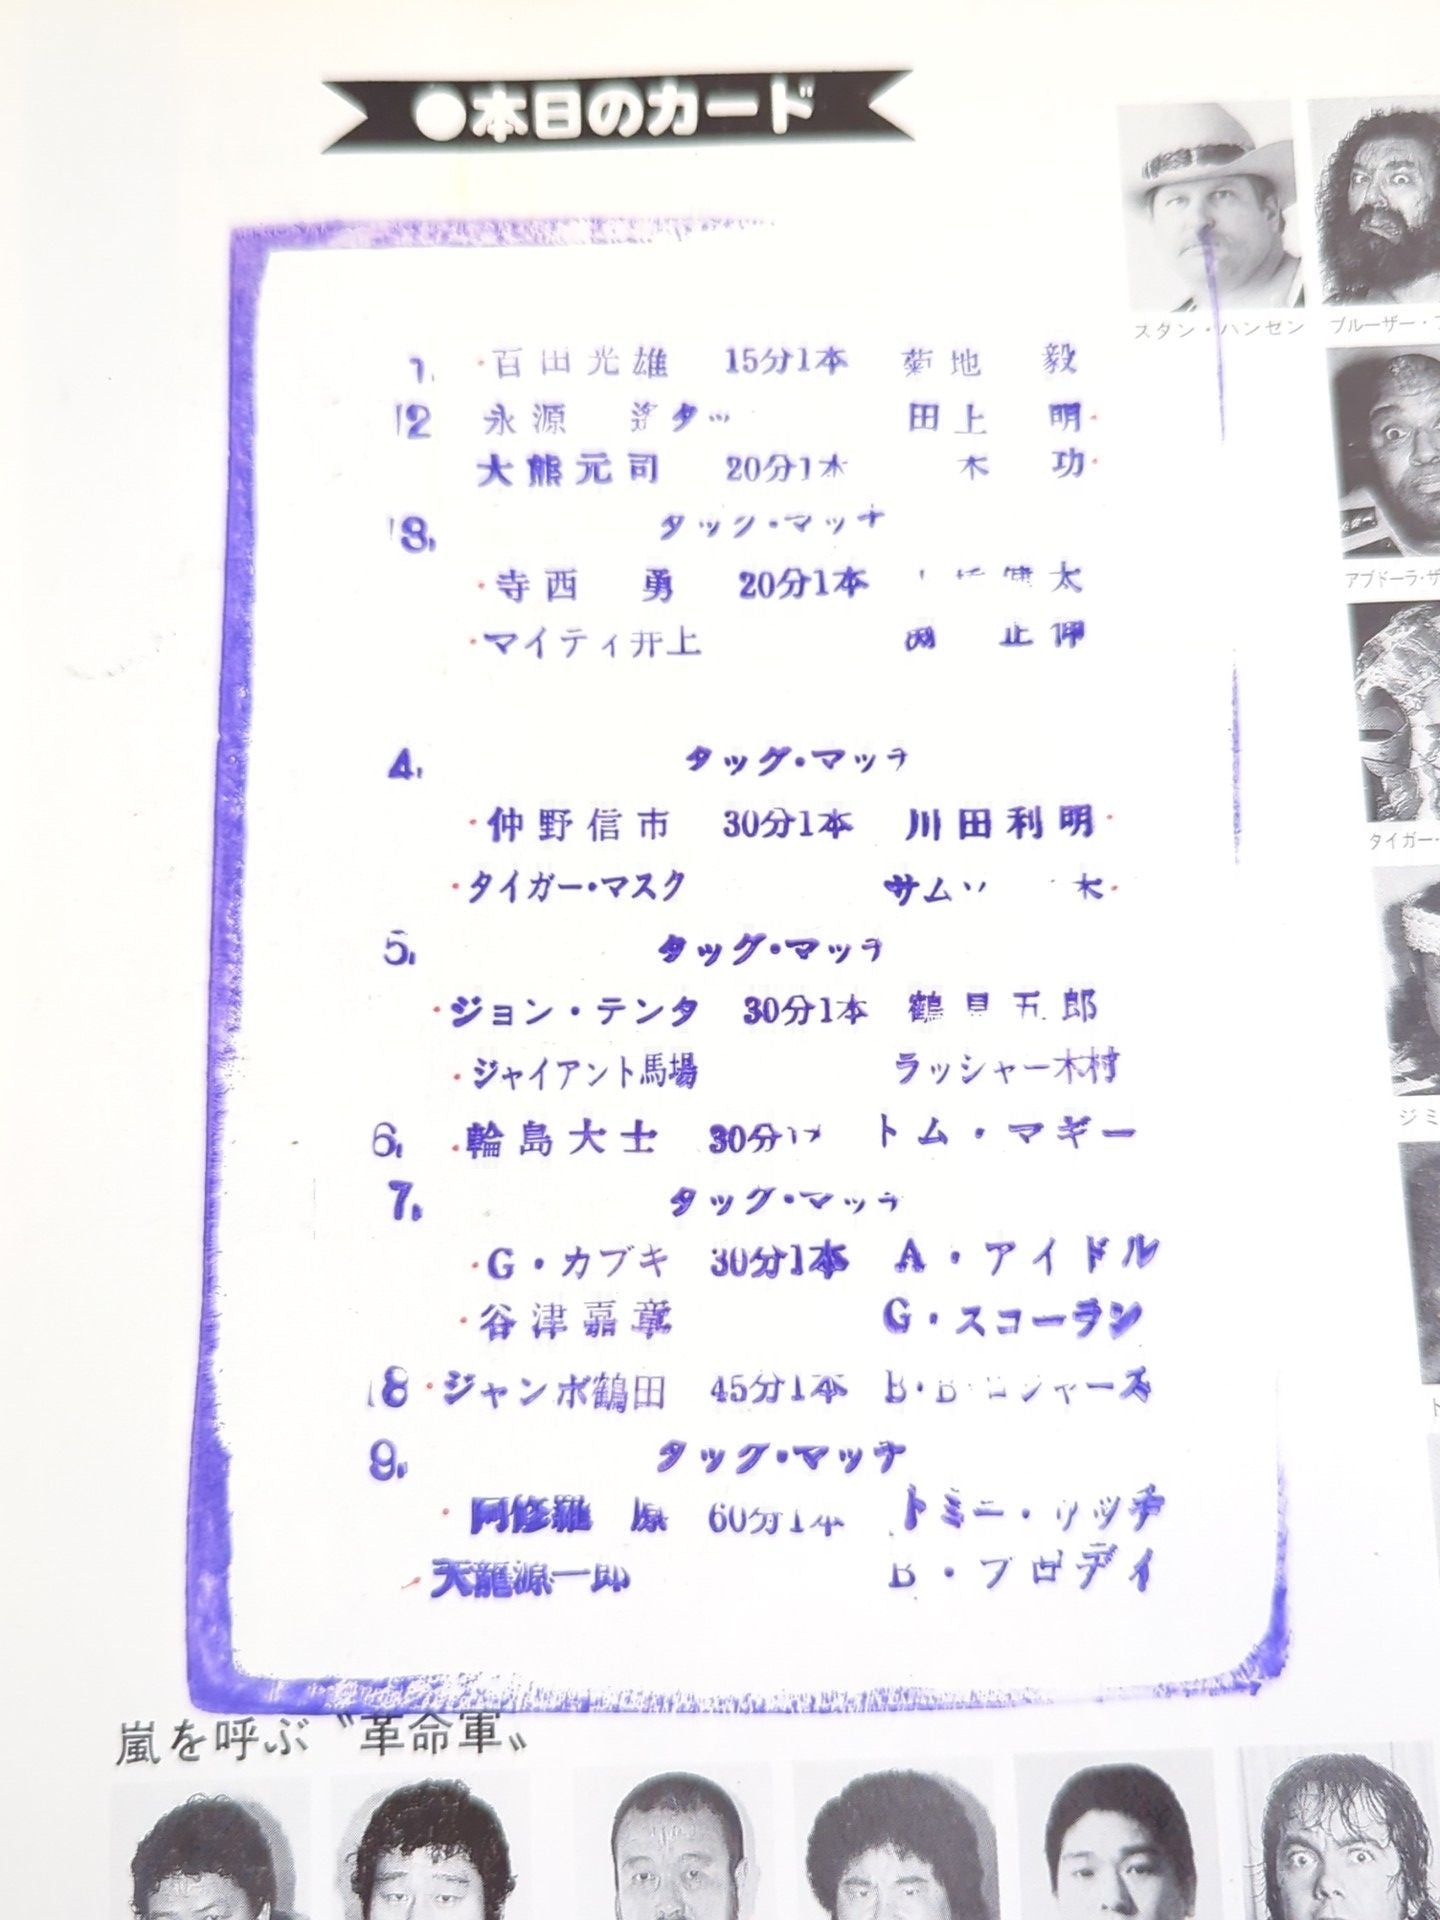 ●本日のカード
1. ・百田光雄 15分1本 菊地 毅
2 永源 遙 タッ 田上 明・
大熊元司 20分1本 木 功・
3. タッグ・マッチ
・寺西 勇 20分1本 健太
・マイティ井上 渕 正伸
4. タッグ・マッチ
・仲野信市 30分1本 川田利明・
・タイガー・マスク サムソ 木・
5. タッグ・マッチ
・ジョン・テンタ 30分1本 鶴見五郎
・ジャイアント馬場 ラッシャー木村
6. ・輪島大士 30分1本 トム・マギー
7. タッグ・マッチ
・G・カブキ 30分1本 A・アイドル
・谷津嘉章 G・スコーラン
8 ・ジャンボ鶴田 45分1本 B・B・ロジャース
9. タッグ・マッチ
・阿修羅 原 60分1本 トミー・リッチ
・天龍源一郎 B・ブロディ
スタン・ハンセン
ブルーザー・
アブドーラ・ザ
タイガー・
ジミ
ト
嵐を呼ぶ〝革命軍〟